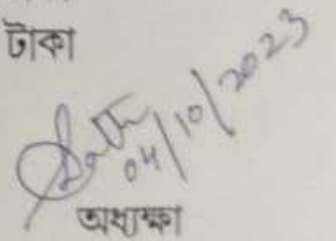 টাকা
04/10/2023
অধ্যক্ষা